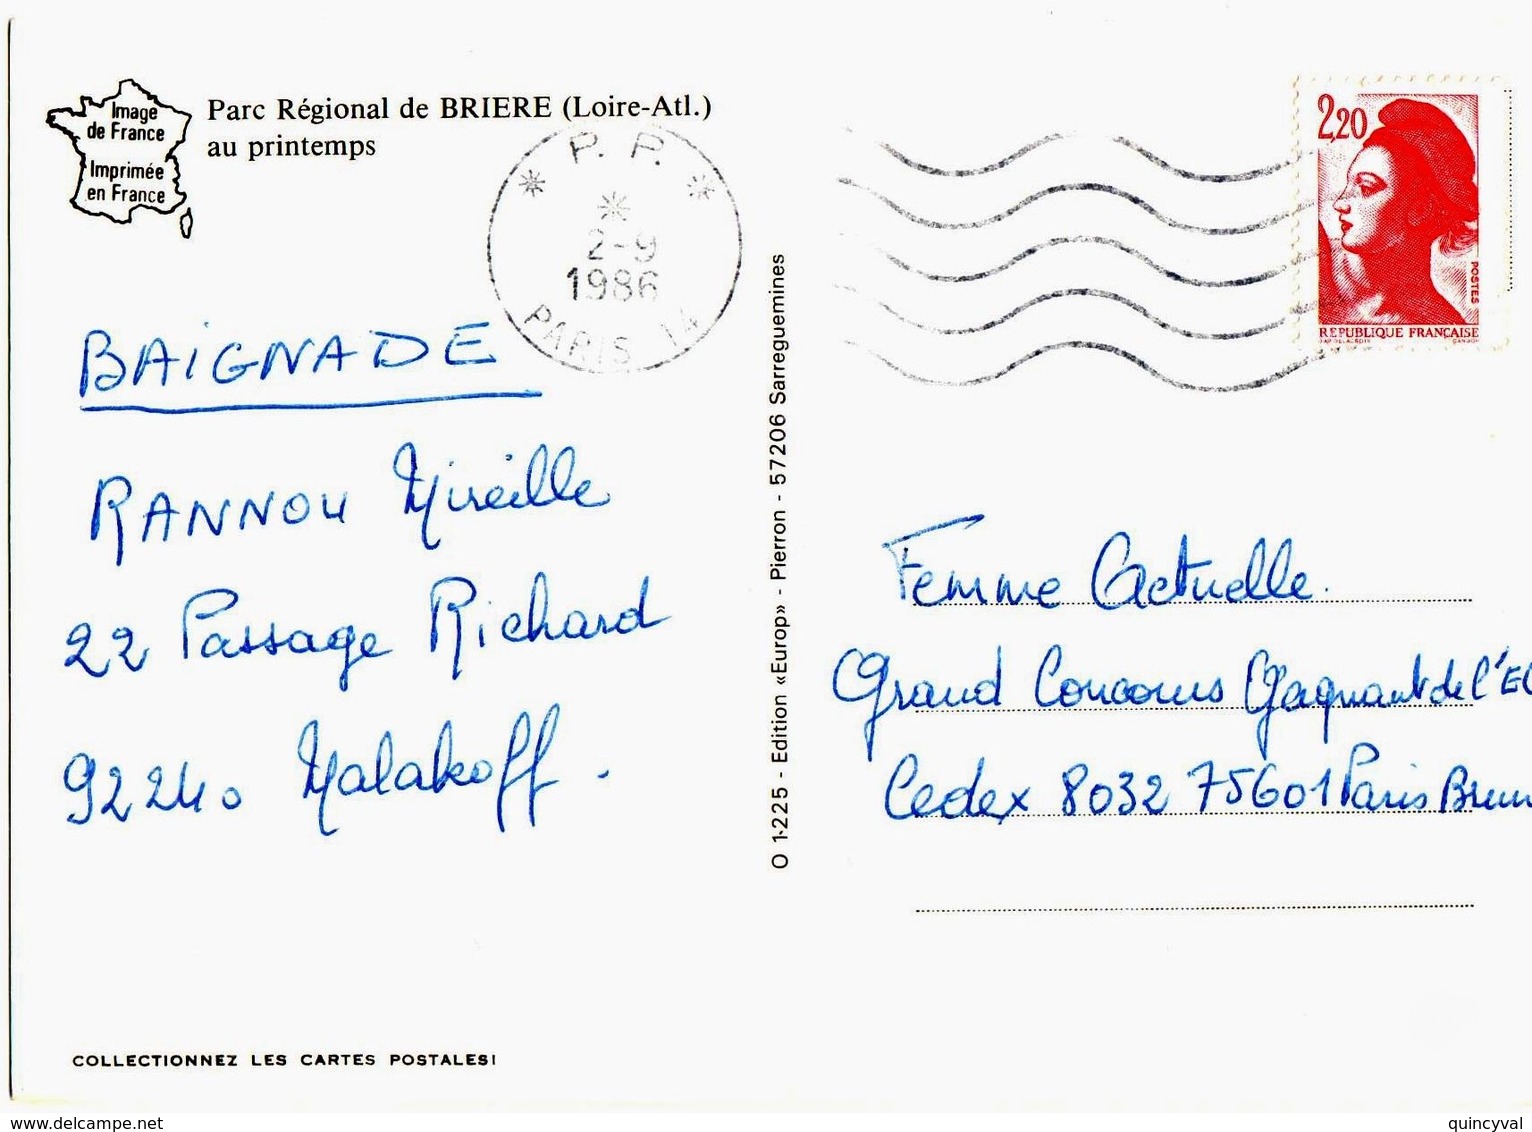 Image
de France
Imprimée
en France
Parc Régional de BRIERE (Loire-Atl.)
au printemps
P. P.
2-9
1986
PARIS 14
2,20
POSTES
REPUBLIQUE FRANÇAISE
BAiGNADE
RANNOU Mireille
22 Passage Richard
92240 Malakoff.
O 1-225 - Edition «Europ» - Pierron - 57206 Sarreguemines
Femme Actuelle.
Grand Concours Gagnant de l'
Cedex 8032 75601 Paris
COLLECTIONNEZ LES CARTES POSTALES!
www.delcampe.net
quincyval